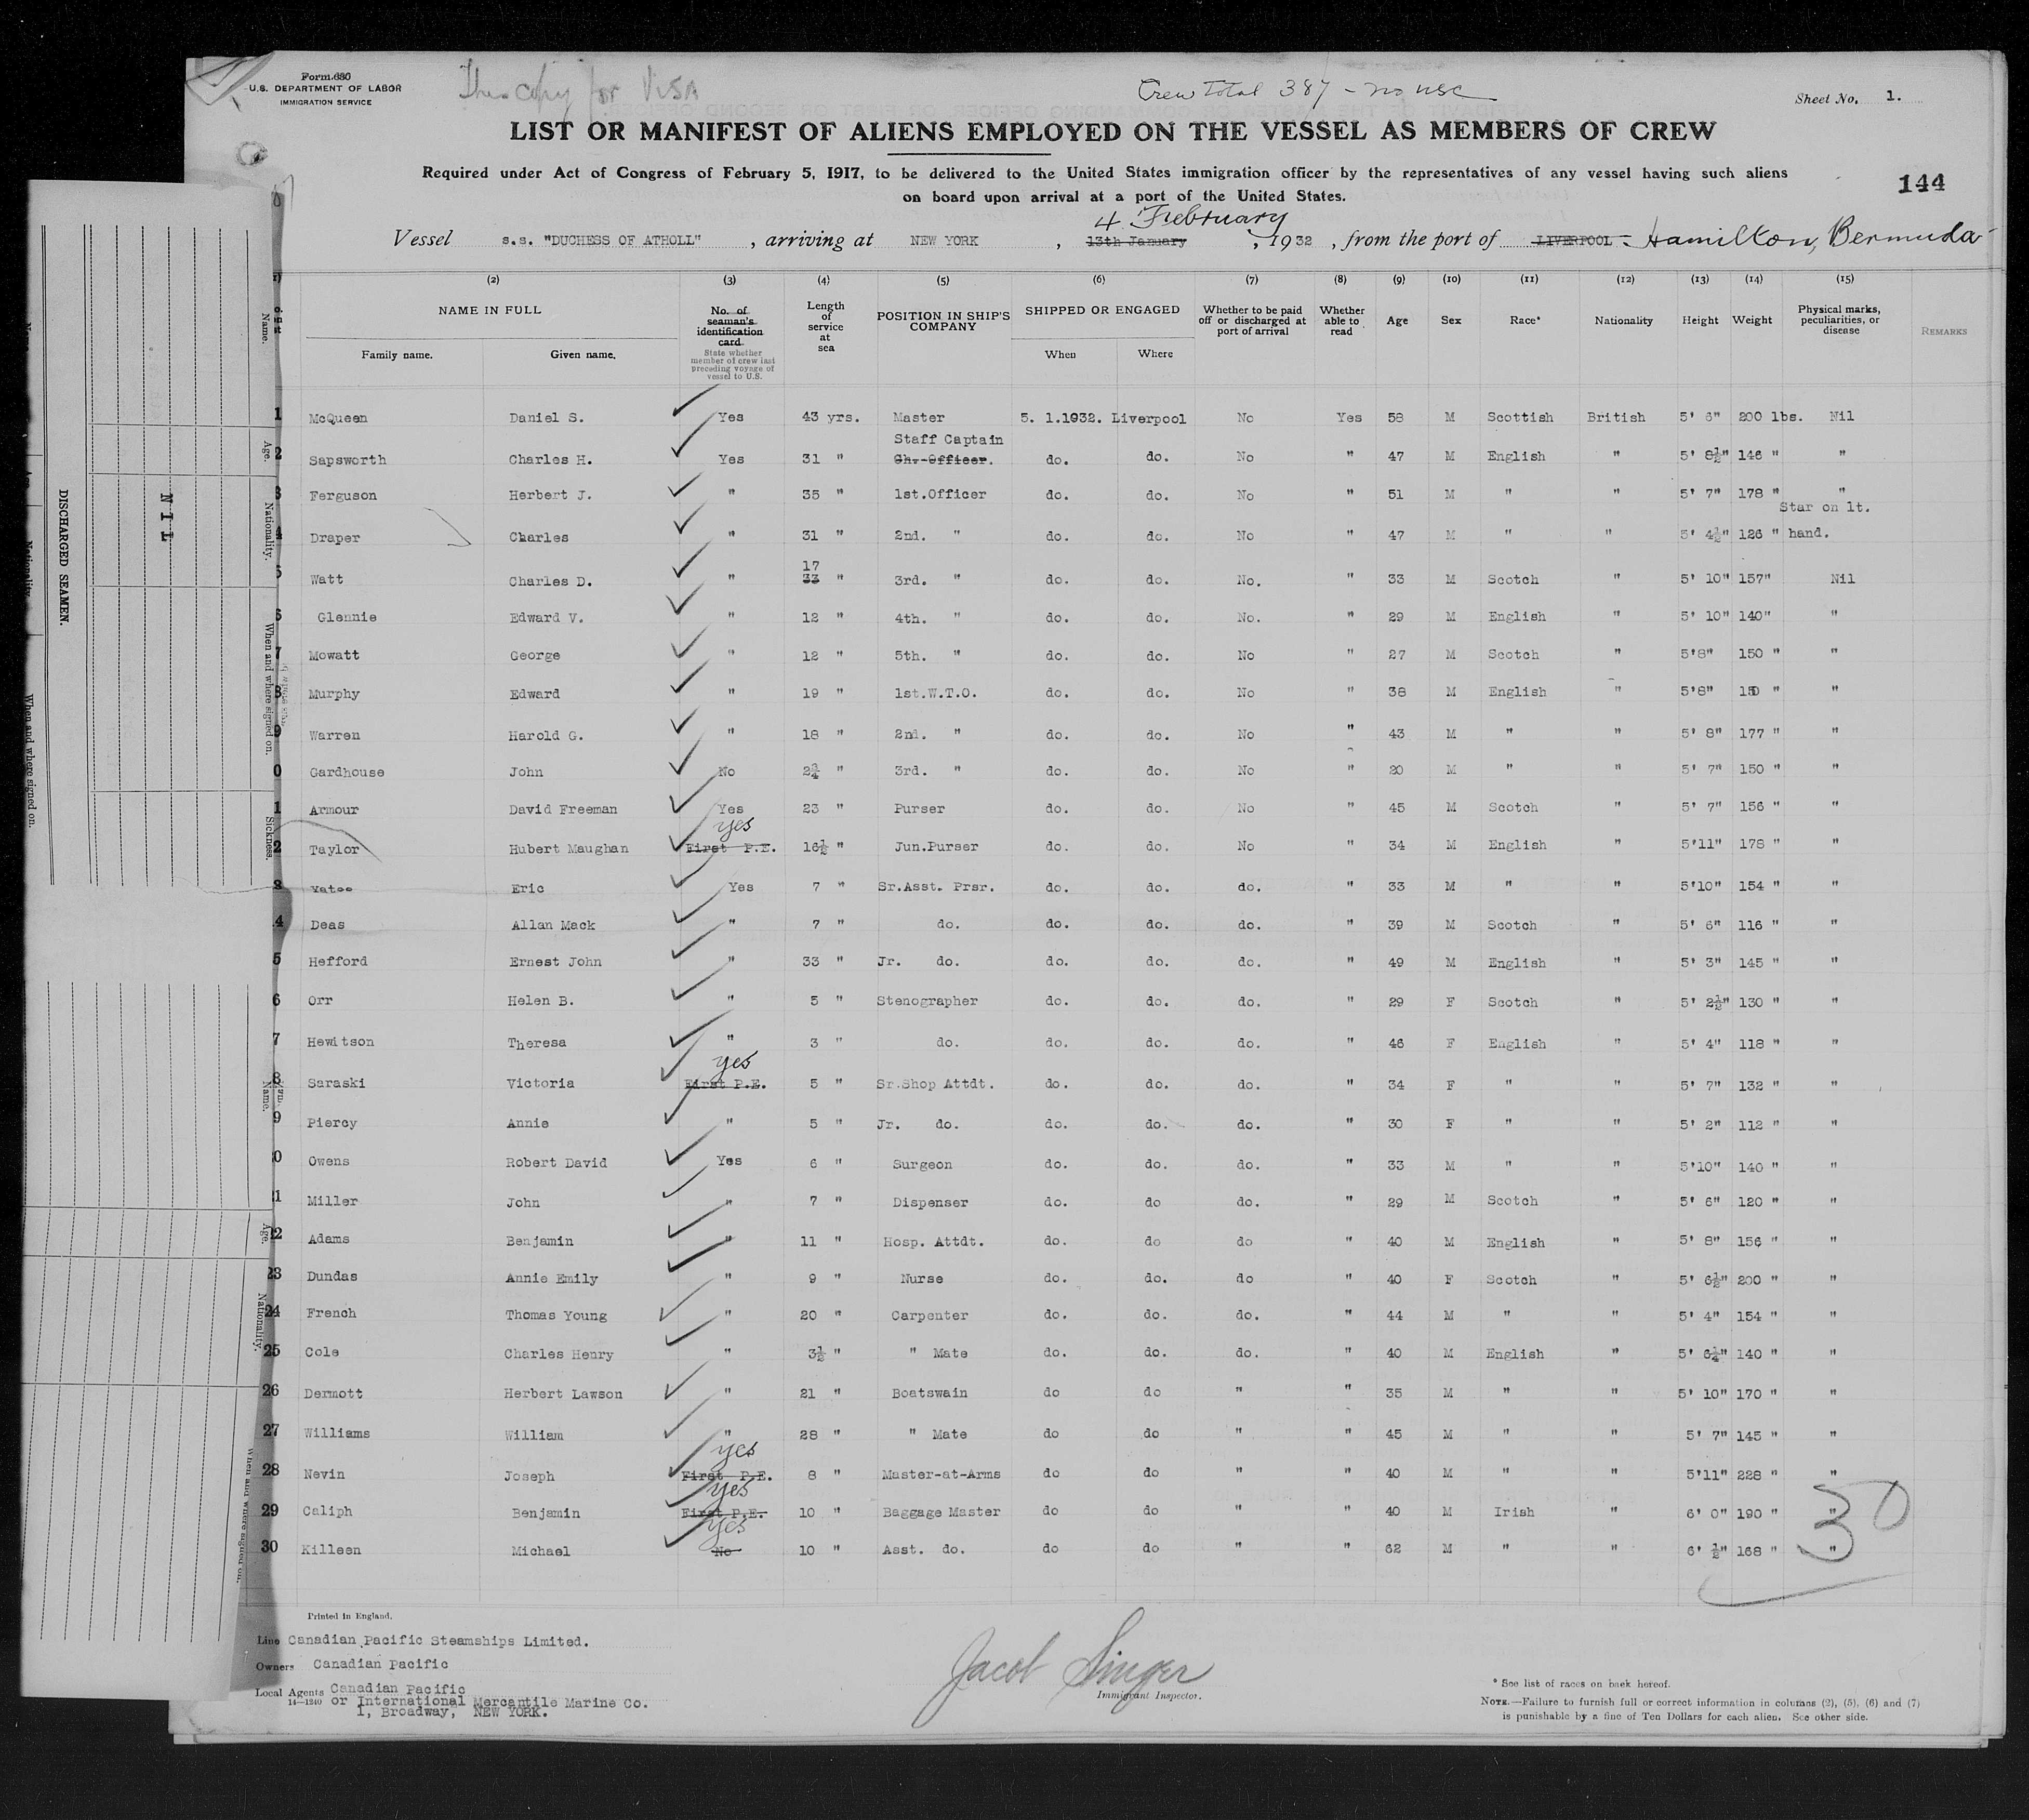 Form 680
U.S. DEPARTMENT OF LABOR
IMMIGRATION SERVICE
This copy for VISA
Crew Total 387 - no USC
Sheet No. 1.
LIST OR MANIFEST OF ALIENS EMPLOYED ON THE VESSEL AS MEMBERS OF CREW
Required under Act of Congress of February 5, 1917, to be delivered to the United States immigration officer by the representatives of any vessel having such aliens
on board upon arrival at a port of the United States.
144
4 February
Vessel s.s. "DUCHESS OF ATHOLL", arriving at NEW YORK, 13th January, 1932, from the port of LIVERPOOL - Hamilton, Bermuda
(2) (3) (4) (5) (6) (7) (8) (9) (10) (11) (12) (13) (14) (15)
NAME IN FULL
Family name. Given name.
No. of seaman's identification card.
State whether member of crew last preceding voyage of vessel to U.S.
Length of service at sea
POSITION IN SHIP'S COMPANY
SHIPPED OR ENGAGED
When Where
Whether to be paid off or discharged at port of arrival
Whether able to read
Age
Sex
Race*
Nationality
Height
Weight
Physical marks, peculiarities, or disease
REMARKS
1 McQueen Daniel S. Yes 43 yrs. Master 5. 1.1932. Liverpool No Yes 58 M Scottish British 5' 6" 200 lbs. Nil
Staff Captain
2 Sapsworth Charles H. Yes 31 " Ch. Officer. do. do. No " 47 M English " 5' 8½" 146 " "
3 Ferguson Herbert J. " 35 " 1st.Officer do. do. No " 51 M " " 5' 7" 178 " "
Star on lt.
4 Draper Charles " 31 " 2nd. " do. do. No " 47 M " " 5' 4½" 126 " hand.
17
5 Watt Charles D. " 33 " 3rd. " do. do. No. " 33 M Scotch " 5' 10" 157" Nil
6 Glennie Edward V. " 12 " 4th. " do. do. No. " 29 M English " 5' 10" 140" "
7 Mowatt George " 12 " 5th. " do. do. No " 27 M Scotch " 5'8" 150 " "
8 Murphy Edward " 19 " 1st.W.T.O. do. do. No " 38 M English " 5'8" 150 " "
9 Warren Harold G. " 18 " 2nd. " do. do. No " 43 M " " 5' 8" 177 " "
0 Gardhouse John No 2¾ " 3rd. " do. do. No " 20 M " " 5' 7" 150 " "
1 Armour David Freeman Yes 23 " Purser do. do. No " 45 M Scotch " 5' 7" 156 " "
yes
2 Taylor Hubert Maughan First P.E. 16½ " Jun.Purser do. do. No " 34 M English " 5'11" 178 " "
3 Yates Eric Yes 7 " Sr.Asst. Prsr. do. do. do. " 33 M " " 5'10" 154 " "
4 Deas Allan Mack " 7 " do. do. do. do. " 39 M Scotch " 5' 6" 116 " "
5 Hefford Ernest John " 33 " Jr. do. do. do. do. " 49 M English " 5' 3" 145 " "
6 Orr Helen B. " 5 " Stenographer do. do. do. " 29 F Scotch " 5' 2½" 130 " "
7 Hewitson Theresa " 3 " do. do. do. do. " 46 F English " 5' 4" 118 " "
yes
8 Saraski Victoria First P.E. 5 " Sr.Shop Attdt. do. do. do. " 34 F " " 5' 7" 132 " "
9 Piercy Annie " 5 " Jr. do. do. do. do. " 30 F " " 5' 2" 112 " "
0 Owens Robert David Yes 6 " Surgeon do. do. do. " 33 M " " 5'10" 140 " "
1 Miller John " 7 " Dispenser do. do do. " 29 M Scotch " 5' 6" 120 " "
22 Adams Benjamin " 11 " Hosp. Attdt. do. do do " 40 M English " 5' 8" 156 " "
23 Dundas Annie Emily " 9 " Nurse do. do. do " 40 F Scotch " 5' 6½" 200 " "
24 French Thomas Young " 20 " Carpenter do. do. do. " 44 M " " 5' 4" 154 " "
25 Cole Charles Henry " 3½ " " Mate do. do. do. " 40 M English " 5' 6¼" 140 " "
26 Dermott Herbert Lawson " 21 " Boatswain do do " " 35 M " " 5' 10" 170 " "
27 Williams William " 28 " " Mate do do " " 45 M " " 5' 7" 145 " "
yes
28 Nevin Joseph First P.E. 8 " Master-at-Arms do do " " 40 M " " 5'11" 228 " "
yes
29 Caliph Benjamin First P.E. 10 " Baggage Master do do " " 40 M Irish " 6' 0" 190 " "
yes
30 Killeen Michael No 10 " Asst. do. do do " " 62 M " " 6' ½" 168 " "
30
Printed in England.
Line Canadian Pacific Steamships Limited.
Owners Canadian Pacific
Local Agents Canadian Pacific
14-1240 or International Mercantile Marine Co.
1, Broadway, NEW YORK.
Jacob Singer
Immigrant Inspector.
* See list of races on back hereof.
NOTE.—Failure to furnish full or correct information in columns (2), (5), (6) and (7)
is punishable by a fine of Ten Dollars for each alien. See other side.
DISCHARGED SEAMEN.
NIL
Name.
Age.
Nationality.
When and where signed on.
Sickness.
Name.
Age.
Nationality.
When and where signed on.
Nationality
When and where signed on.